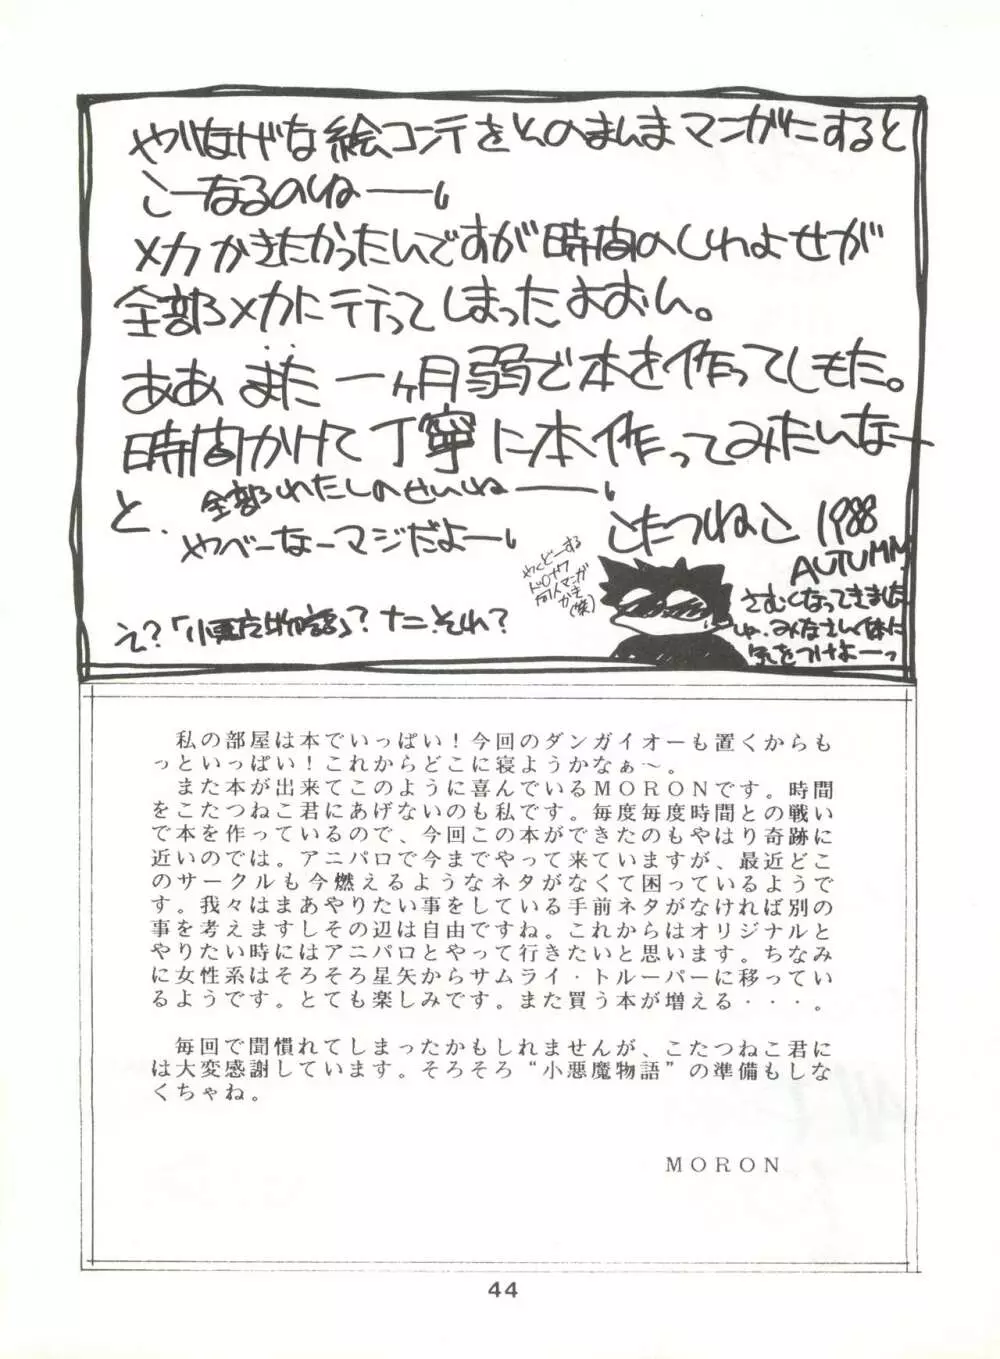 やりなげな絵コンテをそのまんまマンガにすると
こーなるのねー――。
メカかきたかったんですが時間のしわよせが
全部メカに行ってしまったよおん。
ああまた一ヶ月弱で本を作ってしもた。
時間かけて丁寧に本作ってみたいなー
と、全部わたしのせいねー――。
やべーなーマジだよー。
こたつねこ 1988
AUTUMN
さむくなってきました
みなさん体に
気をつけよーっ
え?「小悪魔物語」?ナニそれ?
私の部屋は本でいっぱい!今回のダンガイオーも置くからも
っといっぱい!これからどこに寝ようかなぁ～。
また本が出来てこのように喜んでいるMORONです。時間
をこたつねこ君にあげないのも私です。毎度毎度時間との戦い
で本を作っているので、今回この本ができたのもやはり奇跡に
近いのでは。アニパロで今までやって来ていますが、最近どこ
のサークルも今燃えるようなネタがなくて困っているようで
す。我々はまあやりたい事をしている手前ネタがなければ別の
事を考えますしその辺は自由ですね。これからはオリジナルと
やりたい時にはアニパロとやって行きたいと思います。ちなみ
に女性系はそろそろ星矢からサムライ・トルーパーに移ってい
るようです。とても楽しみです。また買う本が増える・・・。
毎回で聞慣れてしまったかもしれませんが、こたつねこ君に
は大変感謝しています。そろそろ“小悪魔物語”の準備もしな
くちゃね。
MORON
44